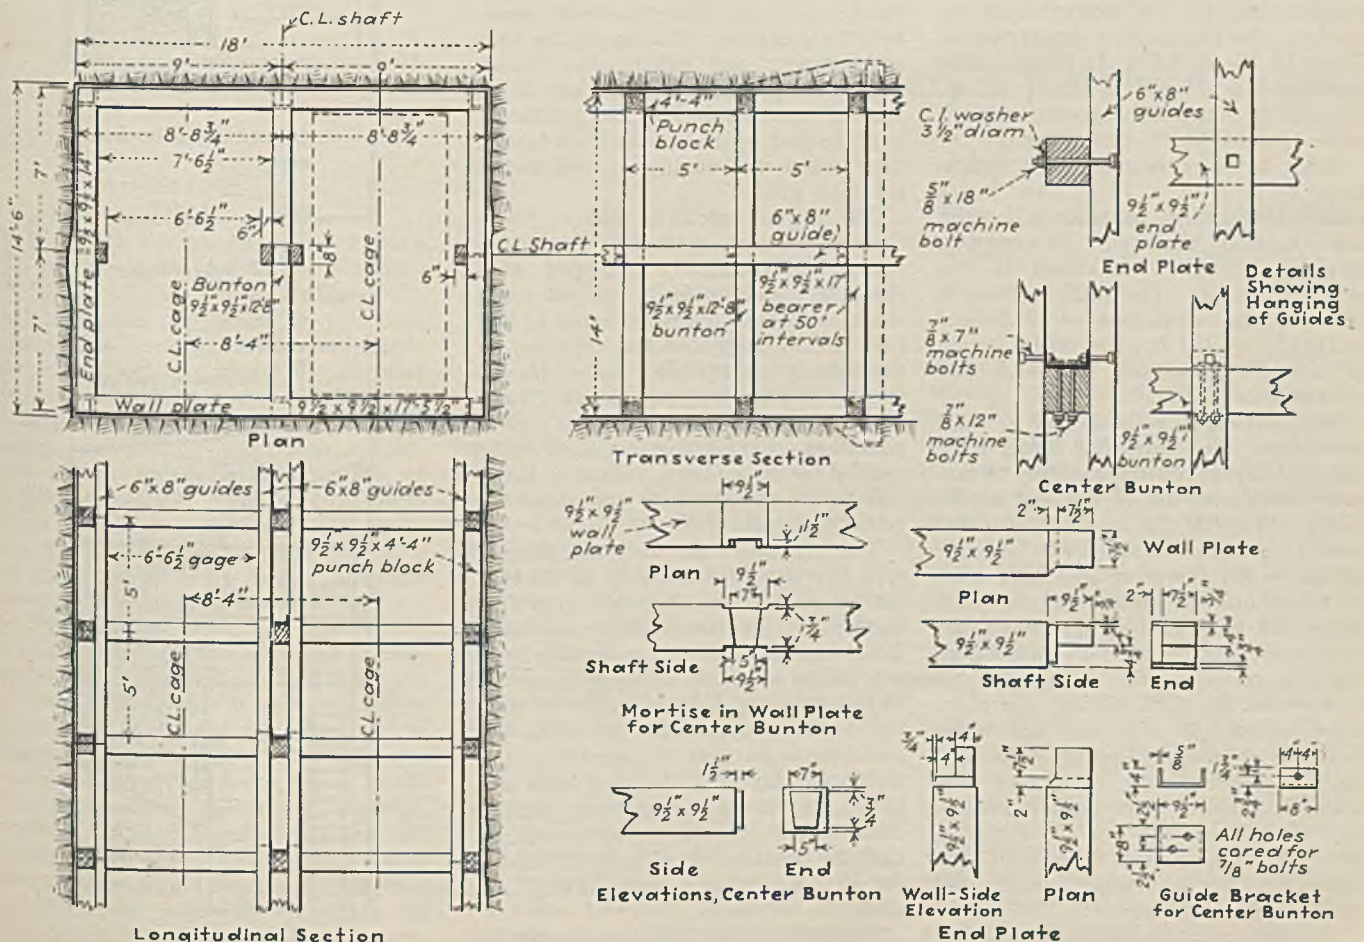 C.L. shaft
18'
9'
9'
8'-8 3/4"
8'-8 3/4"
7'-6 1/2"
6'-6 1/2"
6"
8"
6"
14'-6"
7'
7'
End plate 9 1/2" x 9 1/2" x 14'
C.L. cage
Bunton
9 1/2" x 9 1/2" x 12'-8"
C.L. cage
8'-4"
Wall plate
9 1/2 x 9 1/2 x 17'-5 1/2"
Plan
C.L. Shaft
4'-4"
Punch
block
5'
5'
14'
6"x8"
guide
9 1/2" x 9 1/2" x 12'-8"
bunton
9 1/2" x 9 1/2" x 17'
bearer
at 50'
intervals
Transverse Section
C.I. washer
3 1/2" diam
5/8" x 18"
machine
bolt
6"x8"
guides
9 1/2" x 9 1/2"
end
plate
End Plate
Details
Showing
Hanging
of Guides
7/8" x 7"
machine
bolts
7/8" x 12"
machine
bolts
9 1/2" x 9 1/2"
bunton
Center Bunton
6"x8" guides
6"x8" guides
6'-6 1/2" gage
9 1/2" x 9 1/2" x 4'-4"
punch block
8'-4"
5'
5'
C.L. cage
C.L. cage
Longitudinal Section
9 1/2"
9 1/2" x 9 1/2"
wall
plate
1 1/2"
Plan
9 1/2"
7"
1 3/4"
5"
9 1/2"
Shaft Side
Mortise in Wall Plate
for Center Bunton
2"
7 1/2"
9 1/2" x 9 1/2"
7 1/2"
Wall Plate
Plan
9 1/2"
9 1/2" x 9 1/2"
2"
7 1/2"
Shaft Side
End
1 1/2"
7"
9 1/2" x 9 1/2"
5"
Side
End
Elevations, Center Bunton
3/4"
4"
4"
9 1/2" x 9 1/2"
7 1/2"
2"
9 1/2" x 9 1/2"
Wall-Side
Elevation
Plan
End Plate
5/8"
4"
9 1/2"
8"
1 3/4"
4"
4"
8"
All holes
cored for
7/8" bolts
Guide Bracket
for Center Bunton